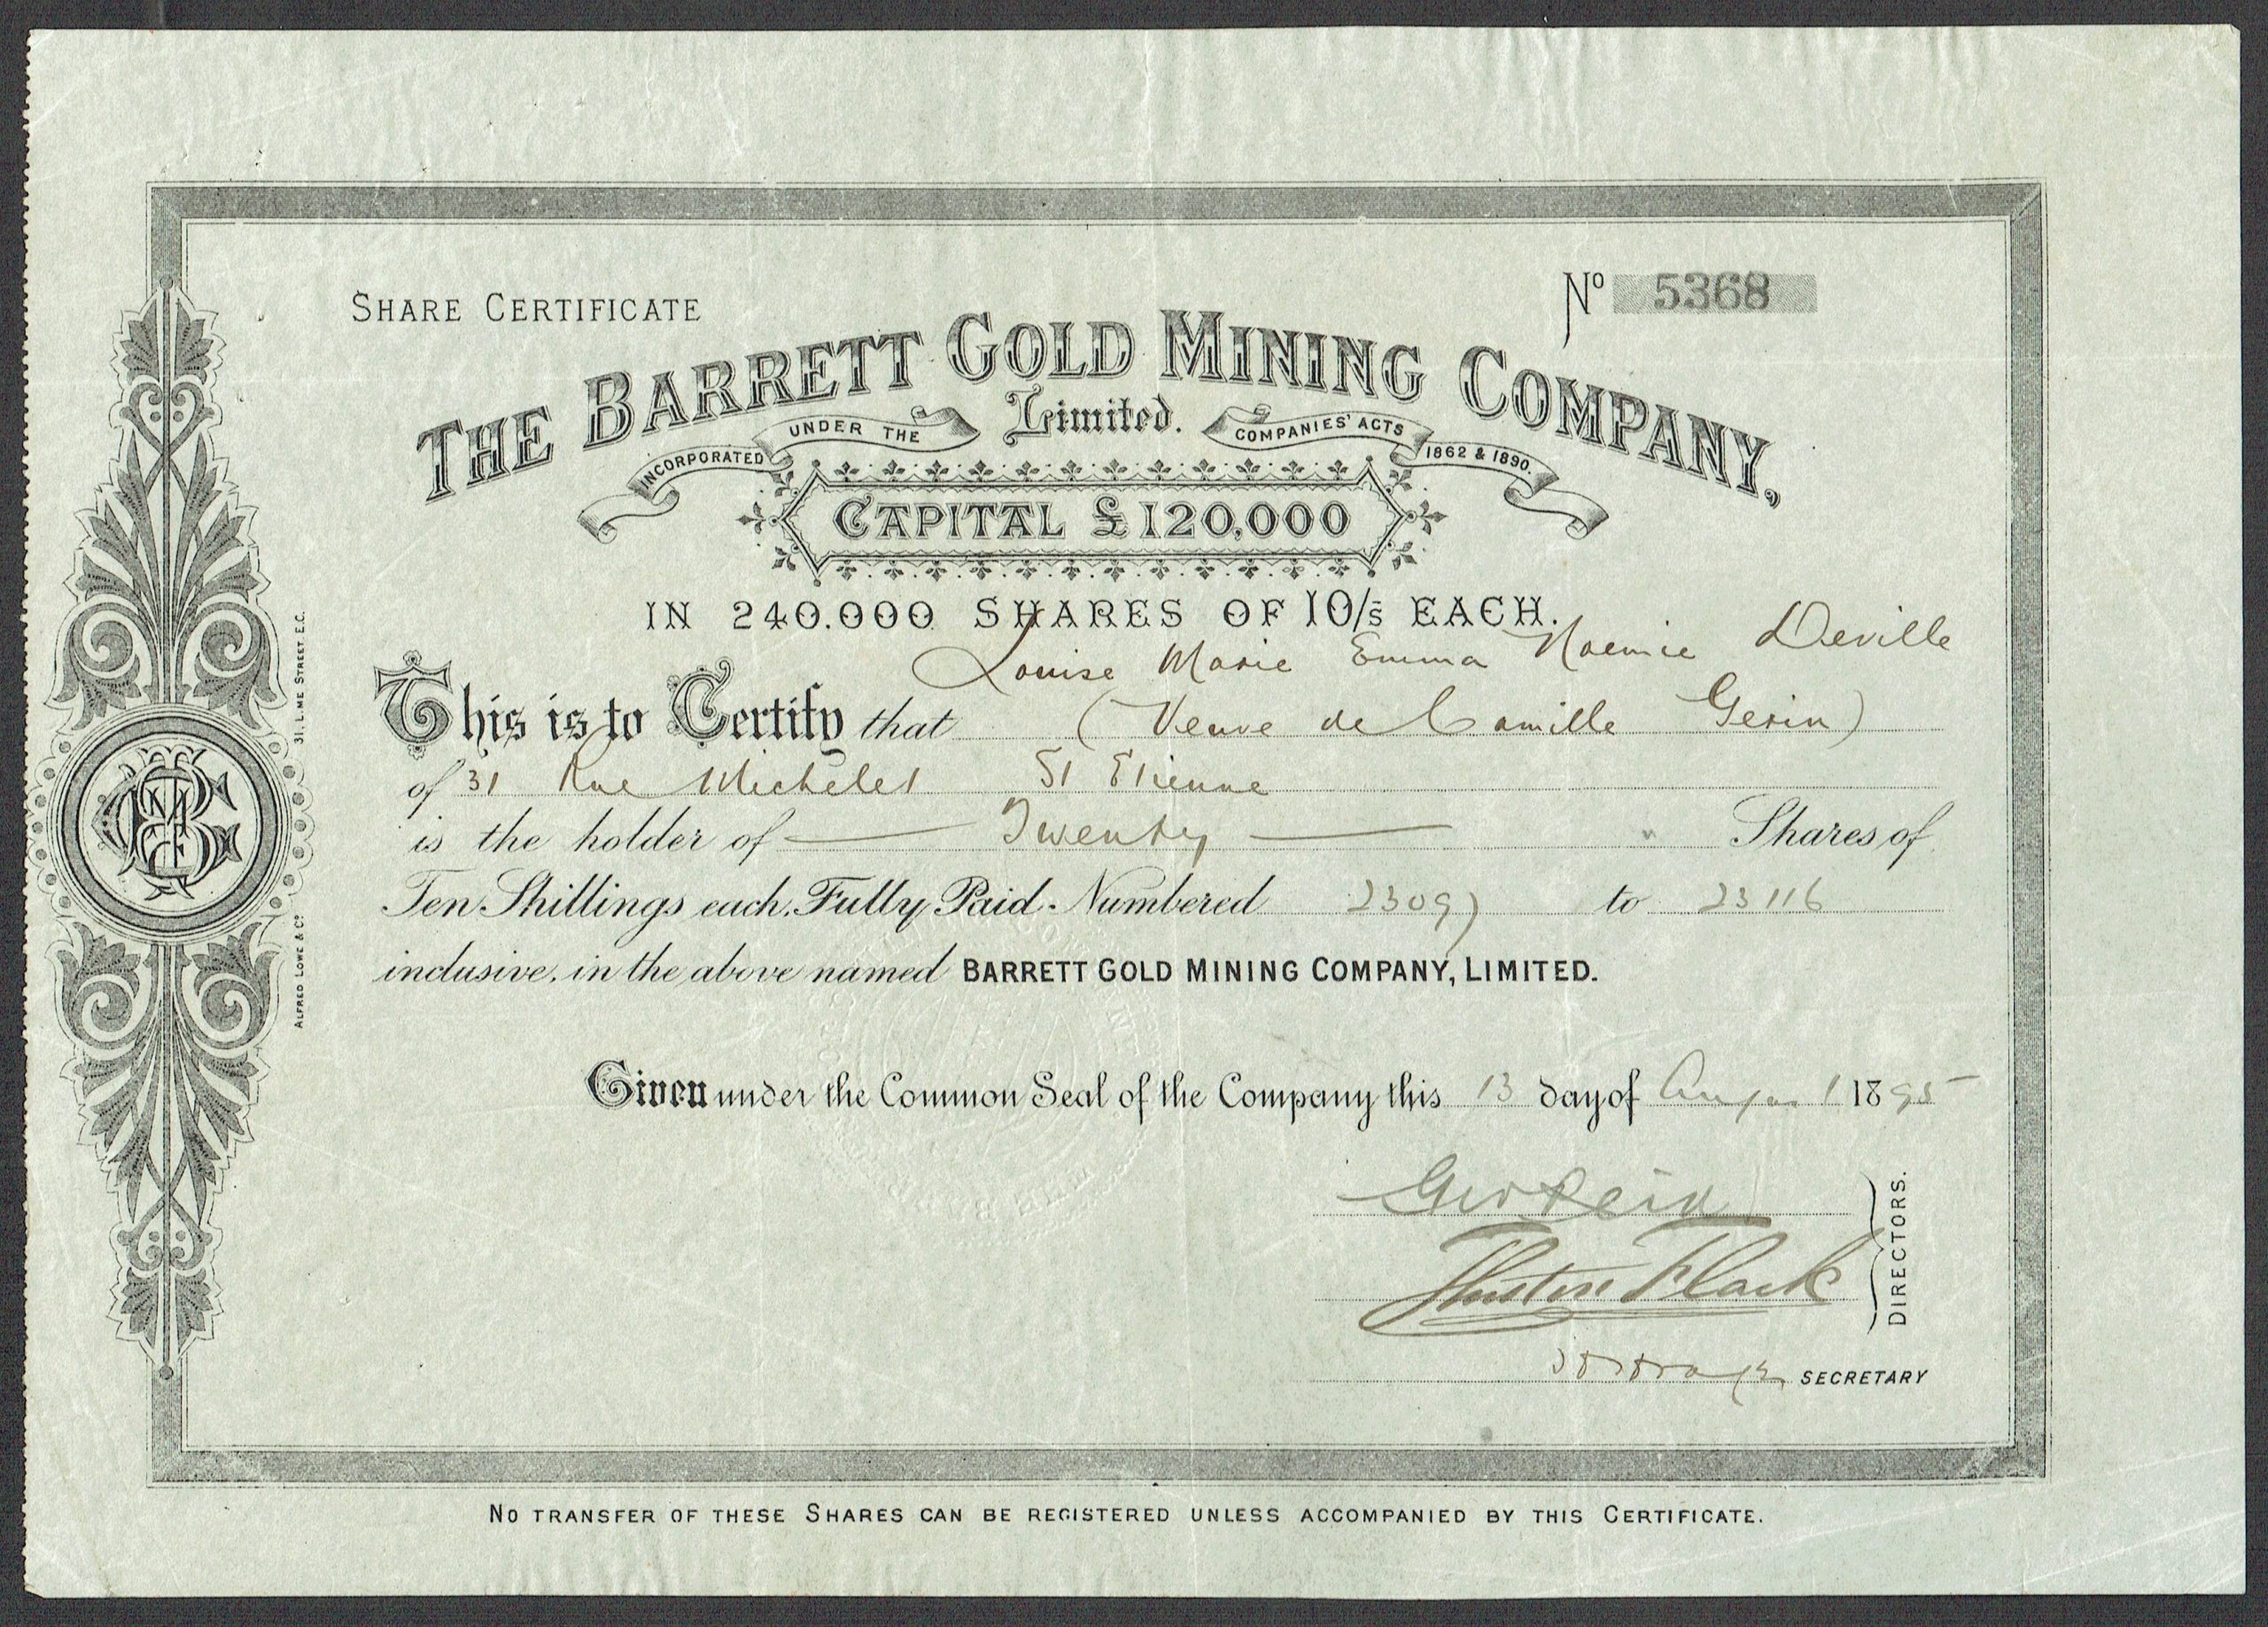 SHARE CERTIFICATE
Nº 5368
THE BARRETT GOLD MINING COMPANY,
Limited.
INCORPORATED UNDER THE COMPANIES' ACTS 1862 & 1890.
CAPITAL £120,000
IN 240.000 SHARES OF 10/s EACH.
Louise Marie Emma Noemie Deville
This is to Certify that (Veuve de Camille Gerin)
of 31 Rue Michelet St Etienne
is the holder of Twenty Shares of
Ten Shillings each, Fully Paid. Numbered 23097 to 23116
inclusive, in the above named BARRETT GOLD MINING COMPANY, LIMITED.
Given under the Common Seal of the Company this 13 day of August 1895
Geo Reid
Flack
DIRECTORS.
SECRETARY
NO TRANSFER OF THESE SHARES CAN BE REGISTERED UNLESS ACCOMPANIED BY THIS CERTIFICATE.
ALFRED LOWE & Cº 31, LIME STREET E.C.